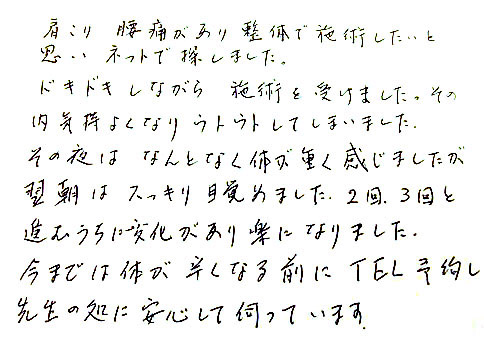 肩こり 腰痛があり整体で施術したいと
思い ネットで探しました。
ドキドキしながら 施術を受けました。その
内気持よくなりウトウトしてしまいました。
その夜は なんとなく体が重く感じましたが
翌朝は スッキリ目覚めました。2回.3回と
進むうちに変化があり楽になりました。
今までは体が辛くなる前にTEL予約し
先生の処に安心して伺っています。